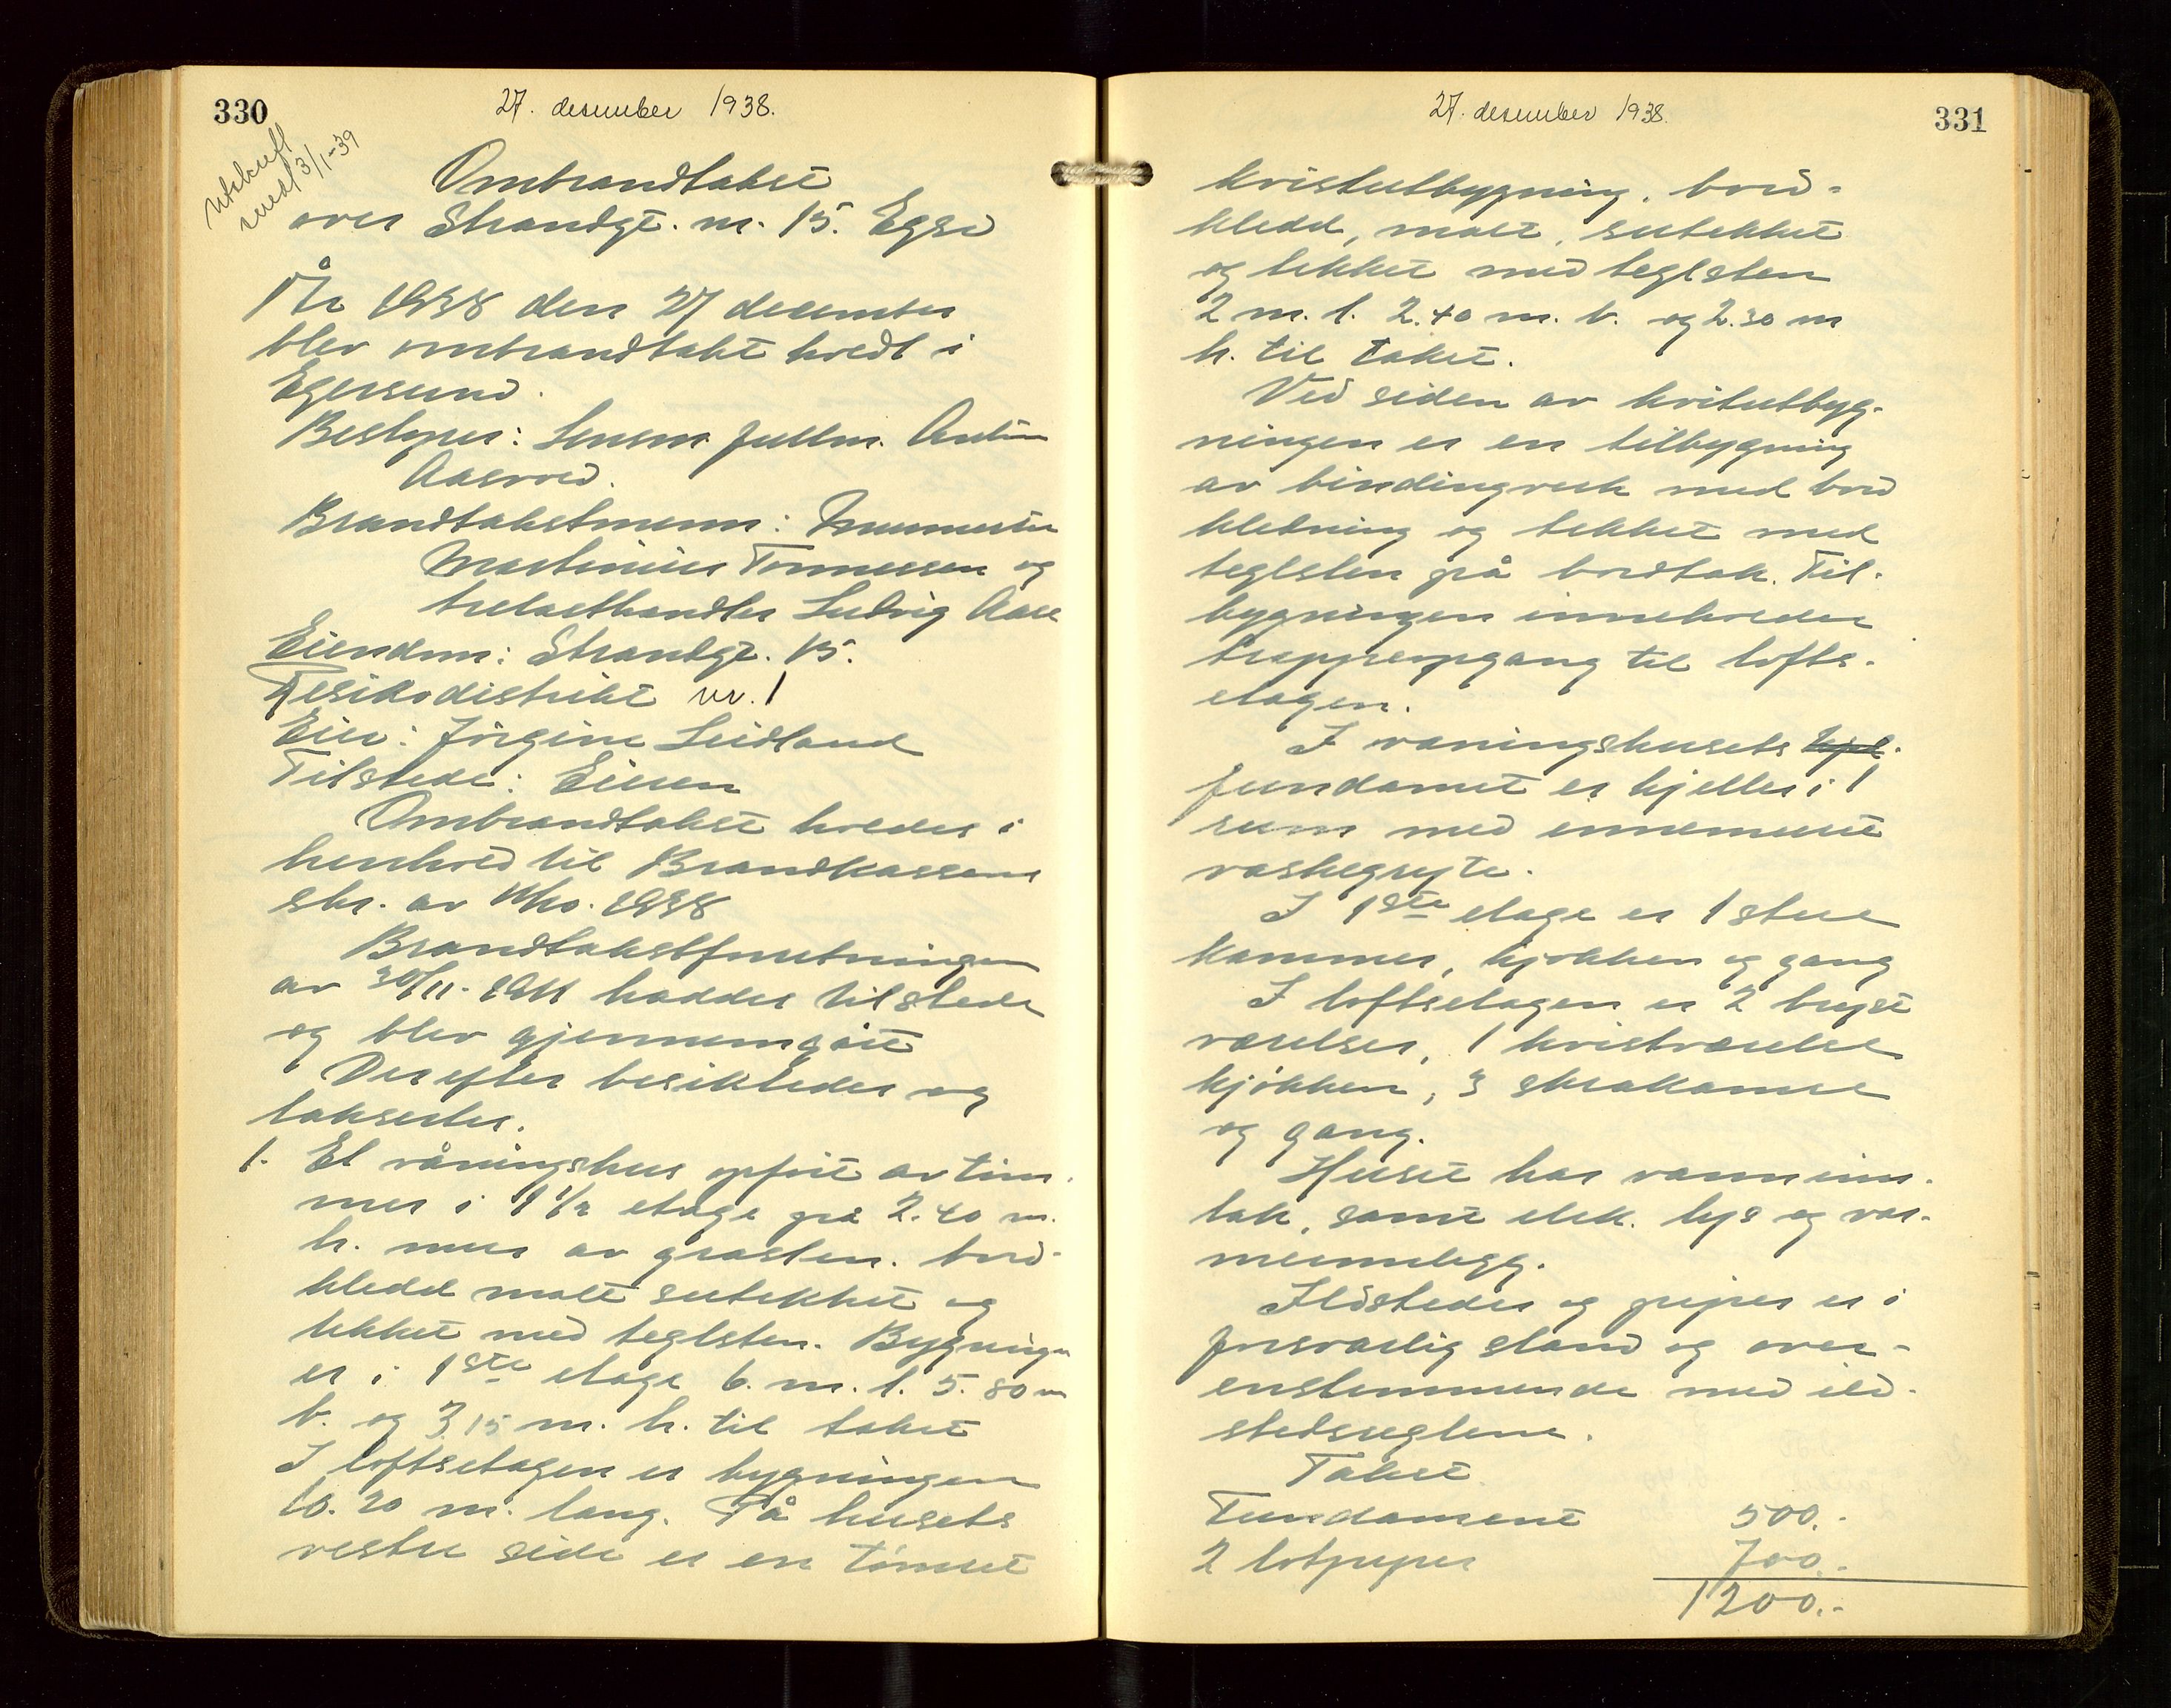 330
27. desember 1938.
Utskrift
med 3/1-39
Ombrandtakst
over Strandgt. nr. 15. Egsd
År 1938 den 27 december
blev ombrandtakt holdt i
Egersund.
Bestyrer: Lensm. fullm. Anton
Aasvold.
Brandtakstmenn: Murmester
Martinius Tønnessen og
trelasthandler Ludvig Aase
Eiendom: Strandgt. 15.
Resikodistrikt nr. 1
Eier: Jørgine Leidland
Tilstede: Eieren
Ombrandtakst holdes i
henhold til Brandkassens
skr. av 1938
Brandtakstforretningen
av 30/11. 1911 haddes tilstede
og blev gjennemgått
Derefter besiktedes og
taksertes.
1. Et våningshus opført av tøm-
mer i 1 1/2 etage på 2.40 m.
h. mur av gråsten. bord-
kledd malt sutekket og
tekket med teglsten. Bygningen
er i 1ste etage 6. m. l. 5.80 m
b. og 3.15 m. h. til taket
I loftsetagen er bygningen
10.20 m. lang. På husets
vestre side er en tømret
27. desember 1938.
331
kvistutbygning, bord-
kledd, malt, sutekket
og tekket med teglsten
2 m. l. 2.40 m. b. og 2.30 m
h. til taket.
Ved siden av kvitutbyg-
ningen er en tilbygning
av bindingverk med bord
kledning og tekket med
teglsten på bordtak. Til-
bygningen inneholder
trappeopgang til lofts-
etagen.
I vaningshusets kjel-
fundamet er kjeller i 1
rum med innemuret
vaskegryte.
I 1ste etage er 1 stue
kammer, kjøkken og gang
I loftsetagen er 2 bryst
værelser, 1 kvistværelse
kjøkken, 3 skrakamre
og gang.
Huset har vanninn-
tak, samt elek. lys og var-
meinnlegg.
Ildsteder og piper er i
forsvarlig stand og over-
enstemmende med ild-
stedsreglene.
Takst
Fundament 500.-
2 lotpiper 700.-
1200.-